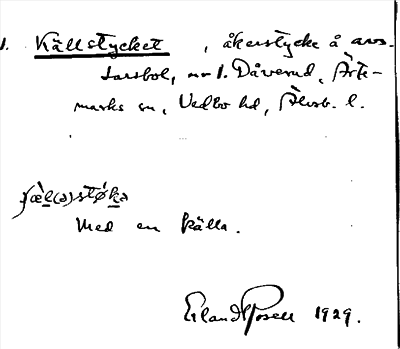 1. Källstycket, åkerstycke å avs.
Larsbol, nr 1. Dåverud, Ärte-
marks sn, Vedbo hd, Älvsb. l.
ɕæ̀l(ə)støkə
Med en källa.
Erland Rosell 1929.